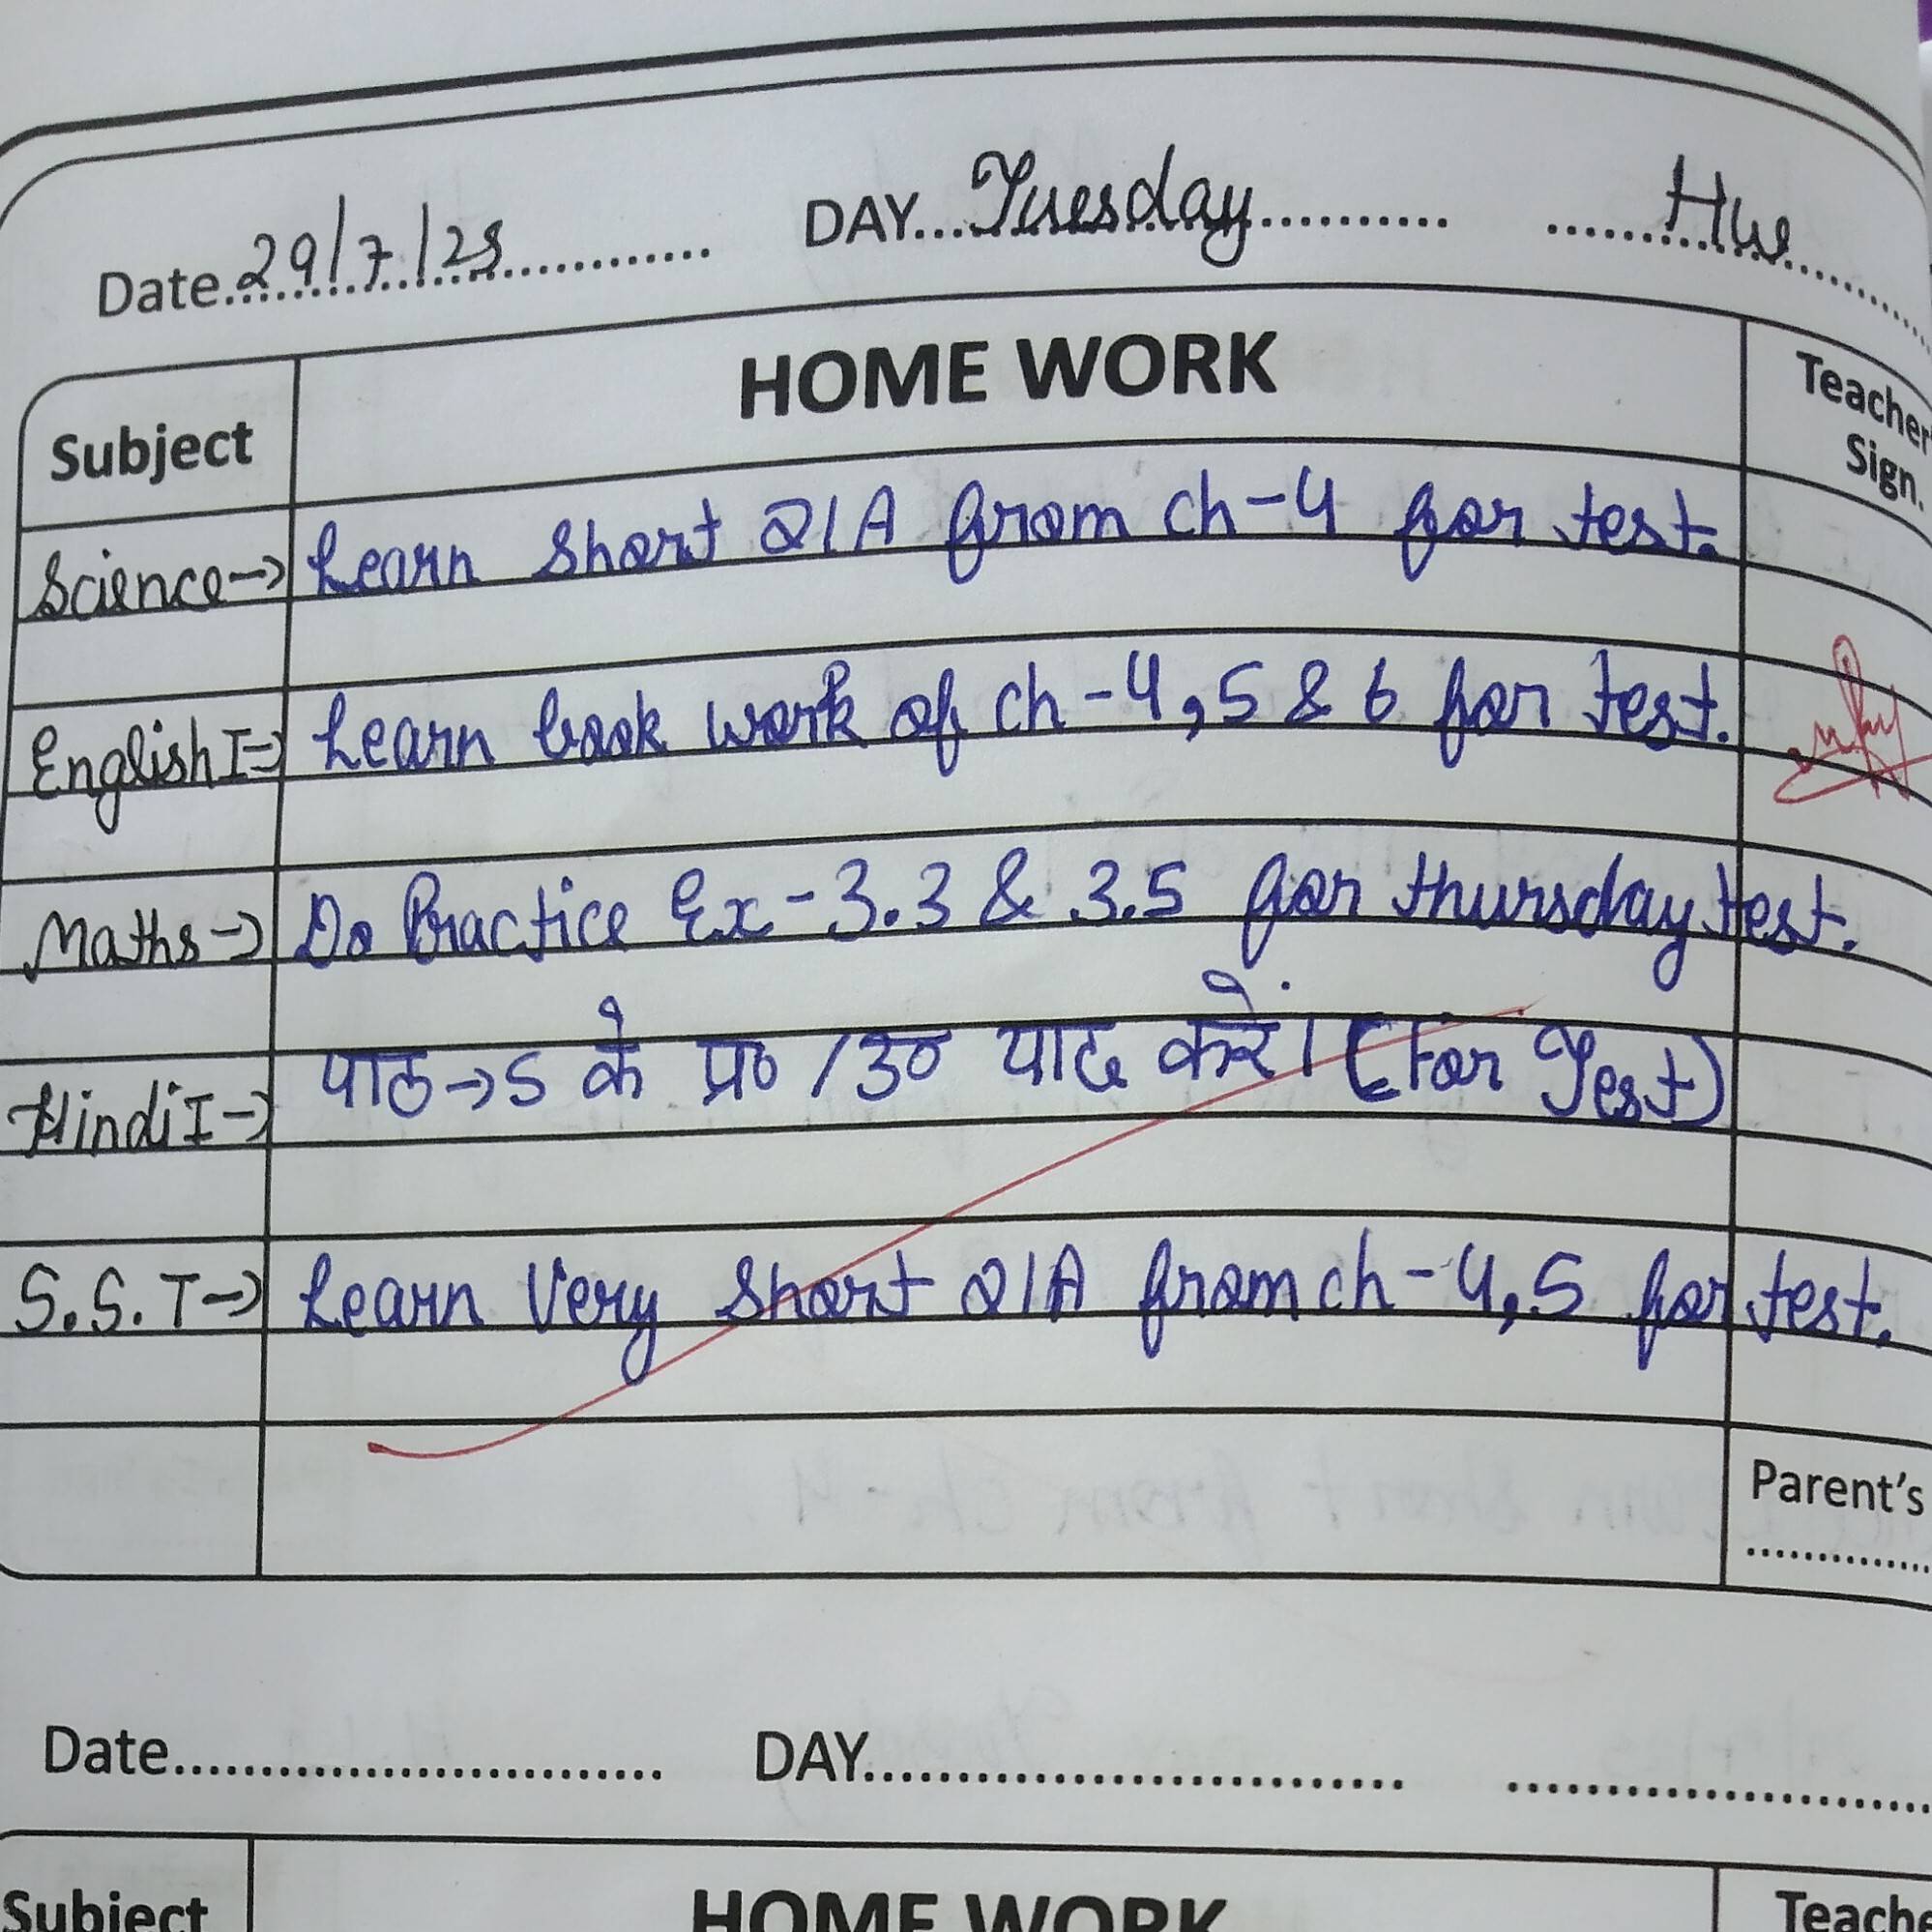 Date 29/7/25 DAY Tuesday H.W
Subject HOME WORK Teacher
Sign.
Science→ Learn short Q/A from ch-4 for test.
English I→ Learn book work of ch-4,5 & 6 for test.
Maths→ Do Practice Ex-3.3 & 3.5 for thursday test.
Hindi I→ पाठ→5 के प्र० /उ० याद करें। (For Test)
S.S.T→ Learn Very short Q/A from ch-4,5 for test.
Parent's
Date DAY
Subject HOME WORK Teache